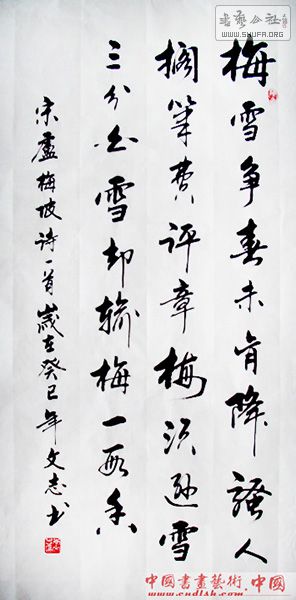 梅雪争春未肯降骚人
搁笔费评章梅须逊雪
三分白雪却输梅一段香
宋卢梅坡诗一首岁在癸巳年文志书
书艺公社
WWW.SHUFA.ORG
中國書畫藝術.中國
www.cndlsh.com